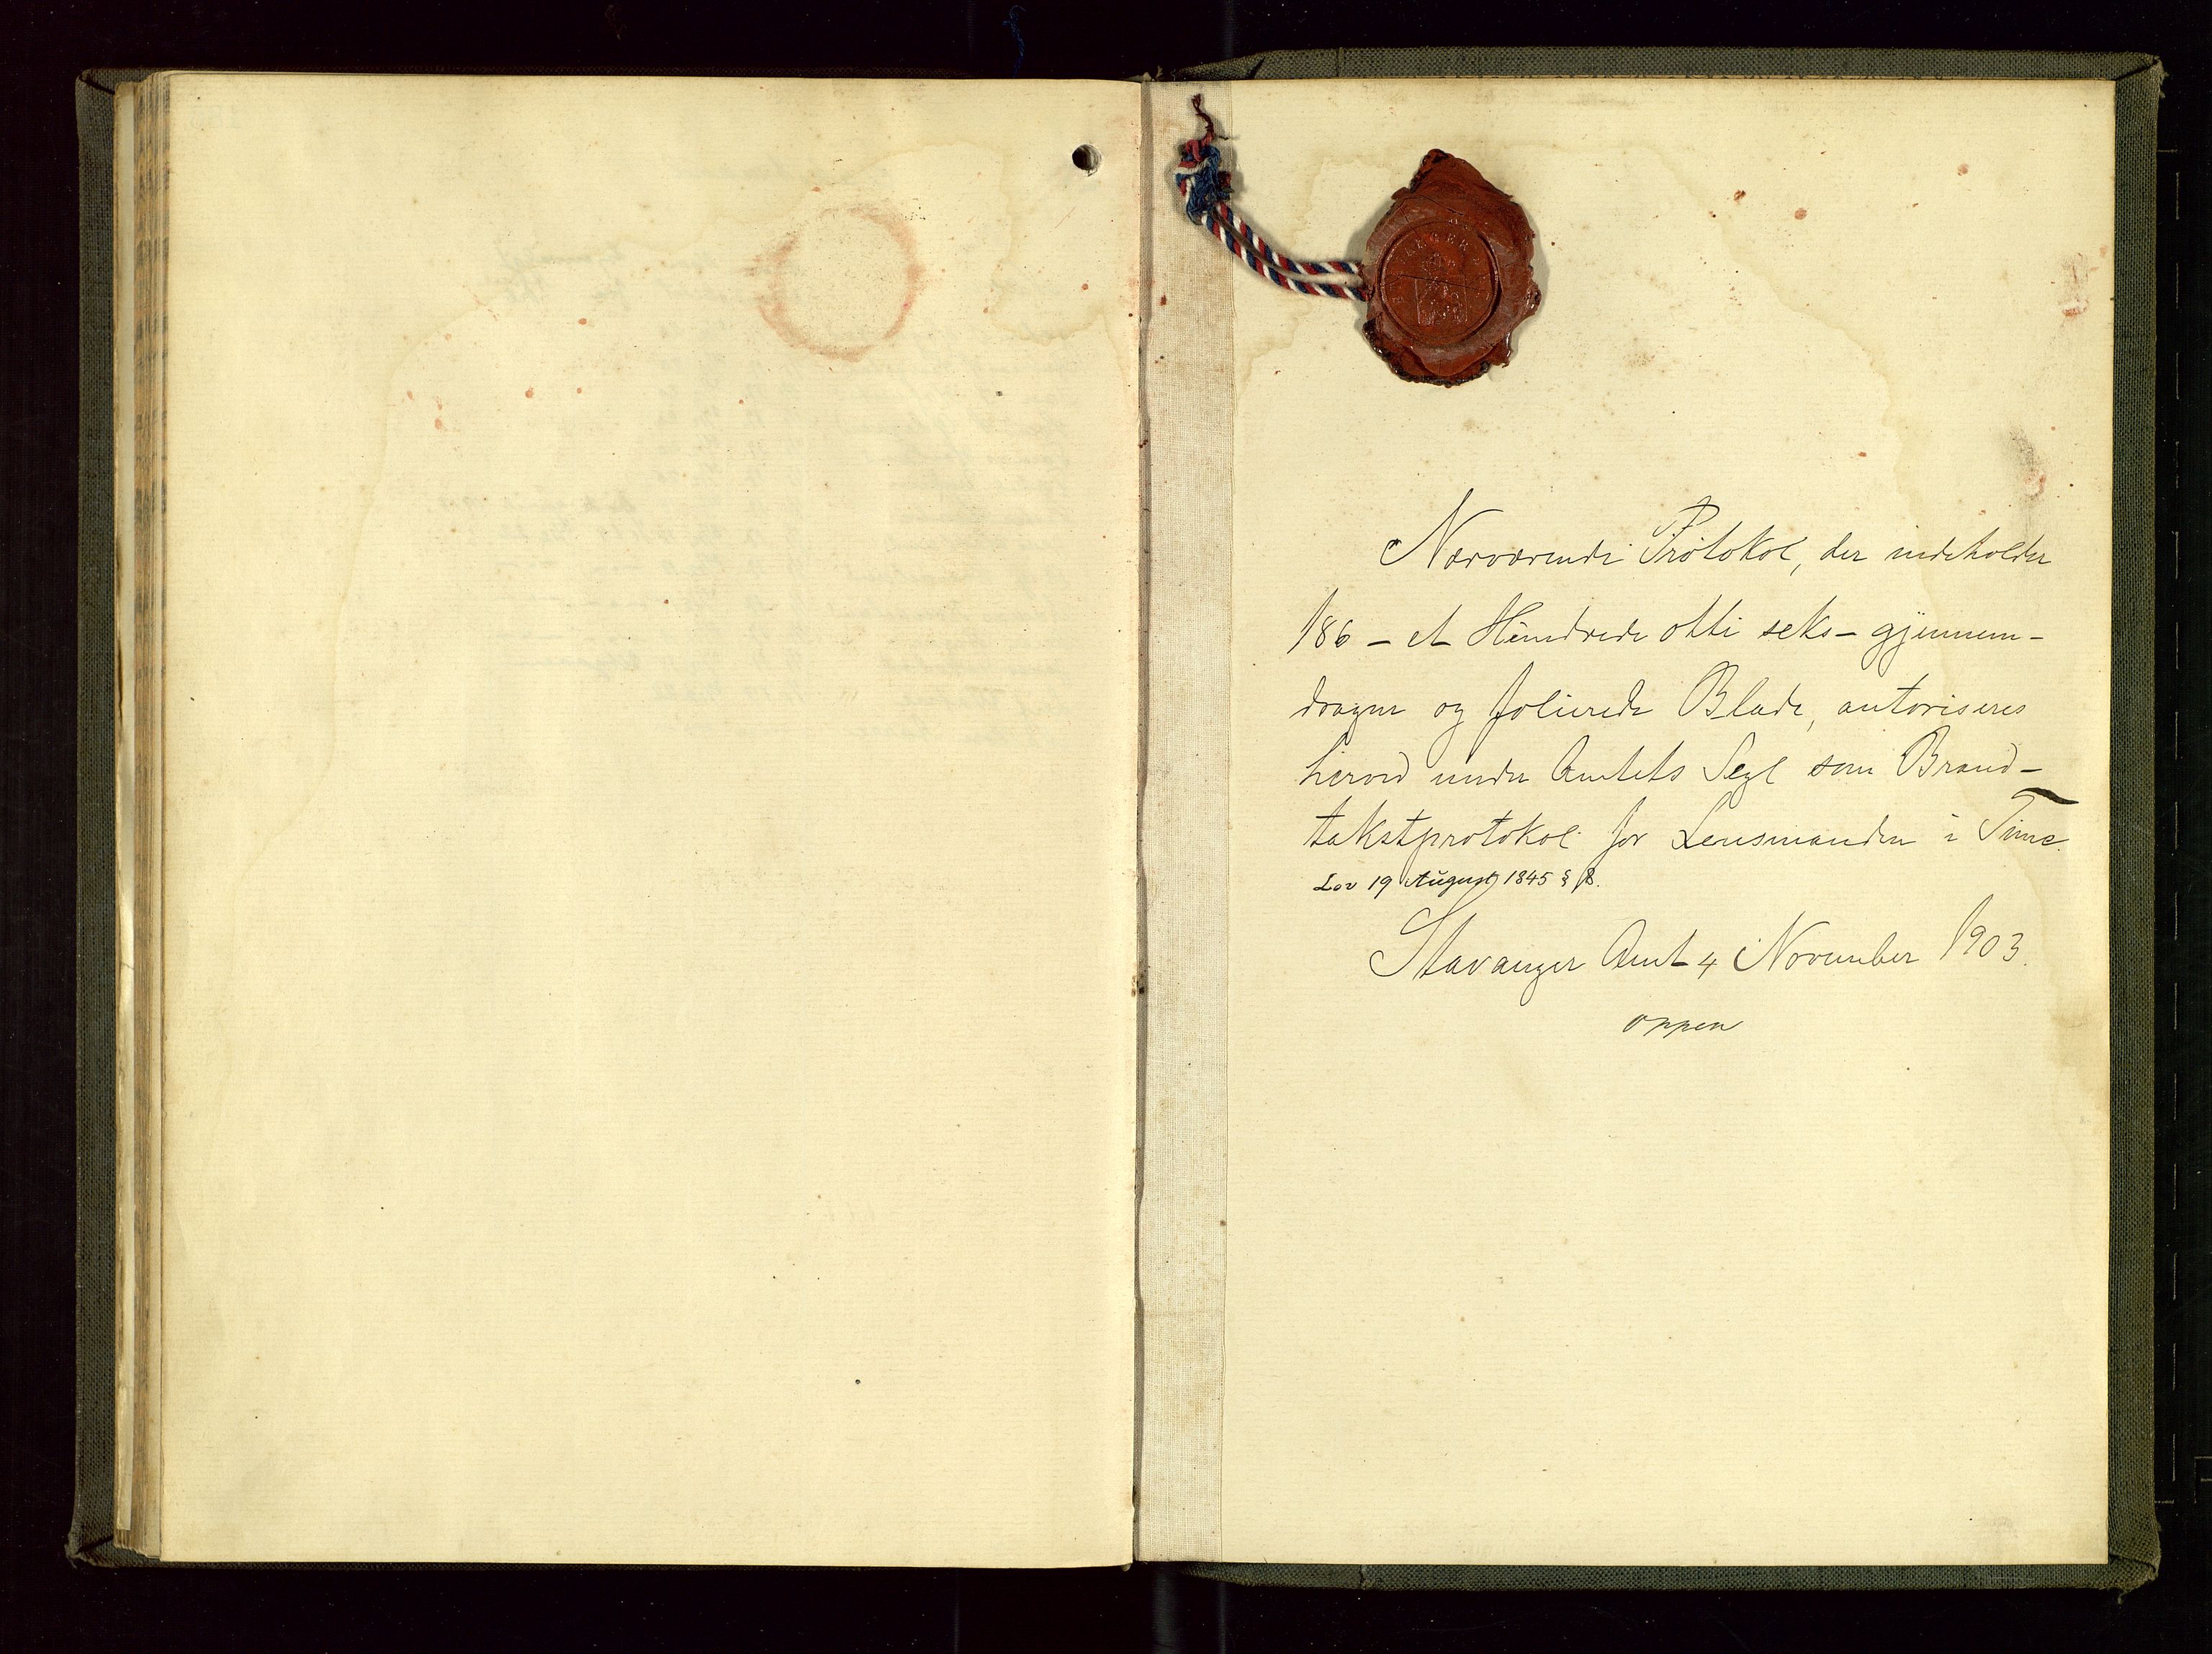 Nærværende Protokol, der indeholder
186 – et Hundrede otti seks – gjennem-
dragne og folierede Blade, autoriseres
herved under Amtets Segl som Brand-
takstprotokol for Lensmanden i Time.
Lov 19 August 1845 §
Stavanger Amt 4 November 1903.
Oppen